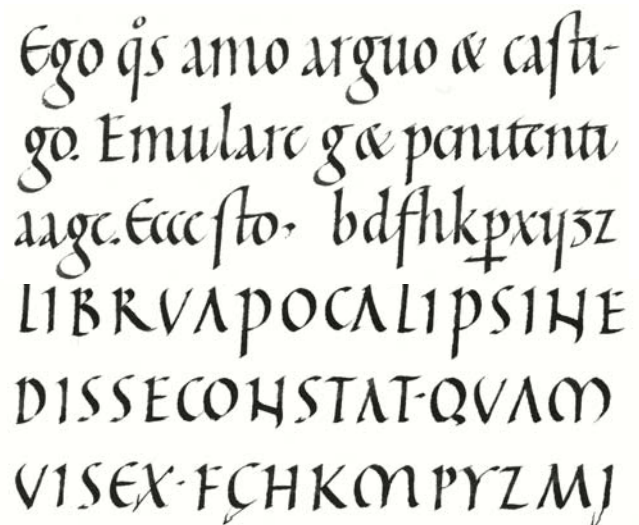 Ego q̊s amo arguo & caſti-
go. Emulare g & penitenti
aage. Ecce ſto, bdfhkꝑxyȝz
LIBRVAPOCALIPSINE
DISSECONSTAT·QVAM
VISEX·FÇHKMPYZMJ